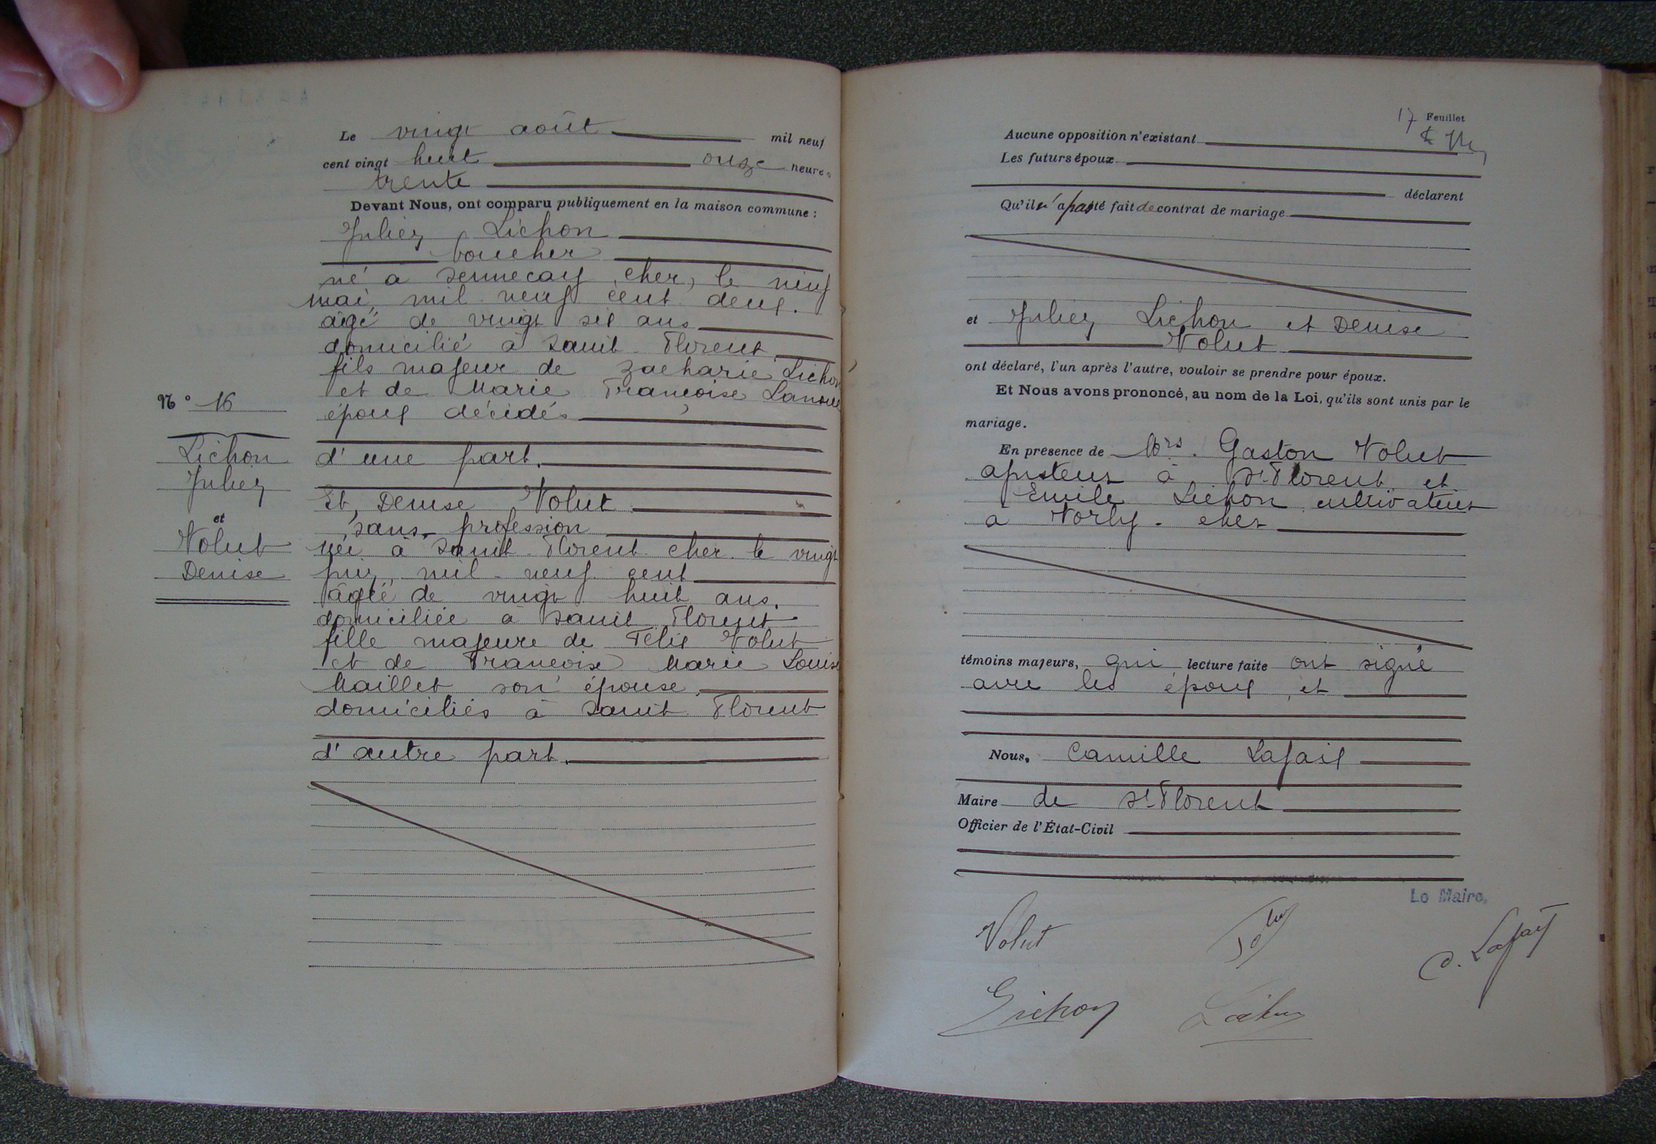 Le vingt août mil neuf
cent vingt huit onze heures
trente
Devant Nous, ont comparu publiquement en la maison commune :
Julien Lichon
boucher
né à Sennecay, cher, le neuf
mai mil neuf cent deux.
âgé de vingt six ans
domicilié à Saint Florent
fils majeur de Zacharie Lichon
et de Marie Françoise
époux décédés
N° 16
Lichon
Julien
et
Volut
Denise
d'une part.
Et, Denise Volut
sans profession
née à Saint Florent cher le vingt
juin mil neuf cent
âgée de vingt huit ans.
domiciliée à Saint Florent
fille majeure de Félix Volut
et de Françoise Marie Louise
Maillet son épouse
domiciliés à Saint Florent
d'autre part.
17 Feuillet
Aucune opposition n'existant
Les futurs époux
déclarent
Qu'il n'a pas été fait de contrat de mariage
et Julien Lichon et Denise
Volut
ont déclaré, l'un après l'autre, vouloir se prendre pour époux.
Et Nous avons prononcé, au nom de la Loi, qu'ils sont unis par le
mariage.
En présence de Mrs. Gaston Volut
ajusteur à St Florent et
Emile Lichon cultivateur
à Vorly - cher
témoins majeurs, qui lecture faite ont signé
avec les époux et
Nous, Camille Lafaix
Maire de St Florent
Officier de l'État-Civil
Le Maire,
Volut
C. Lafaix
Lichon